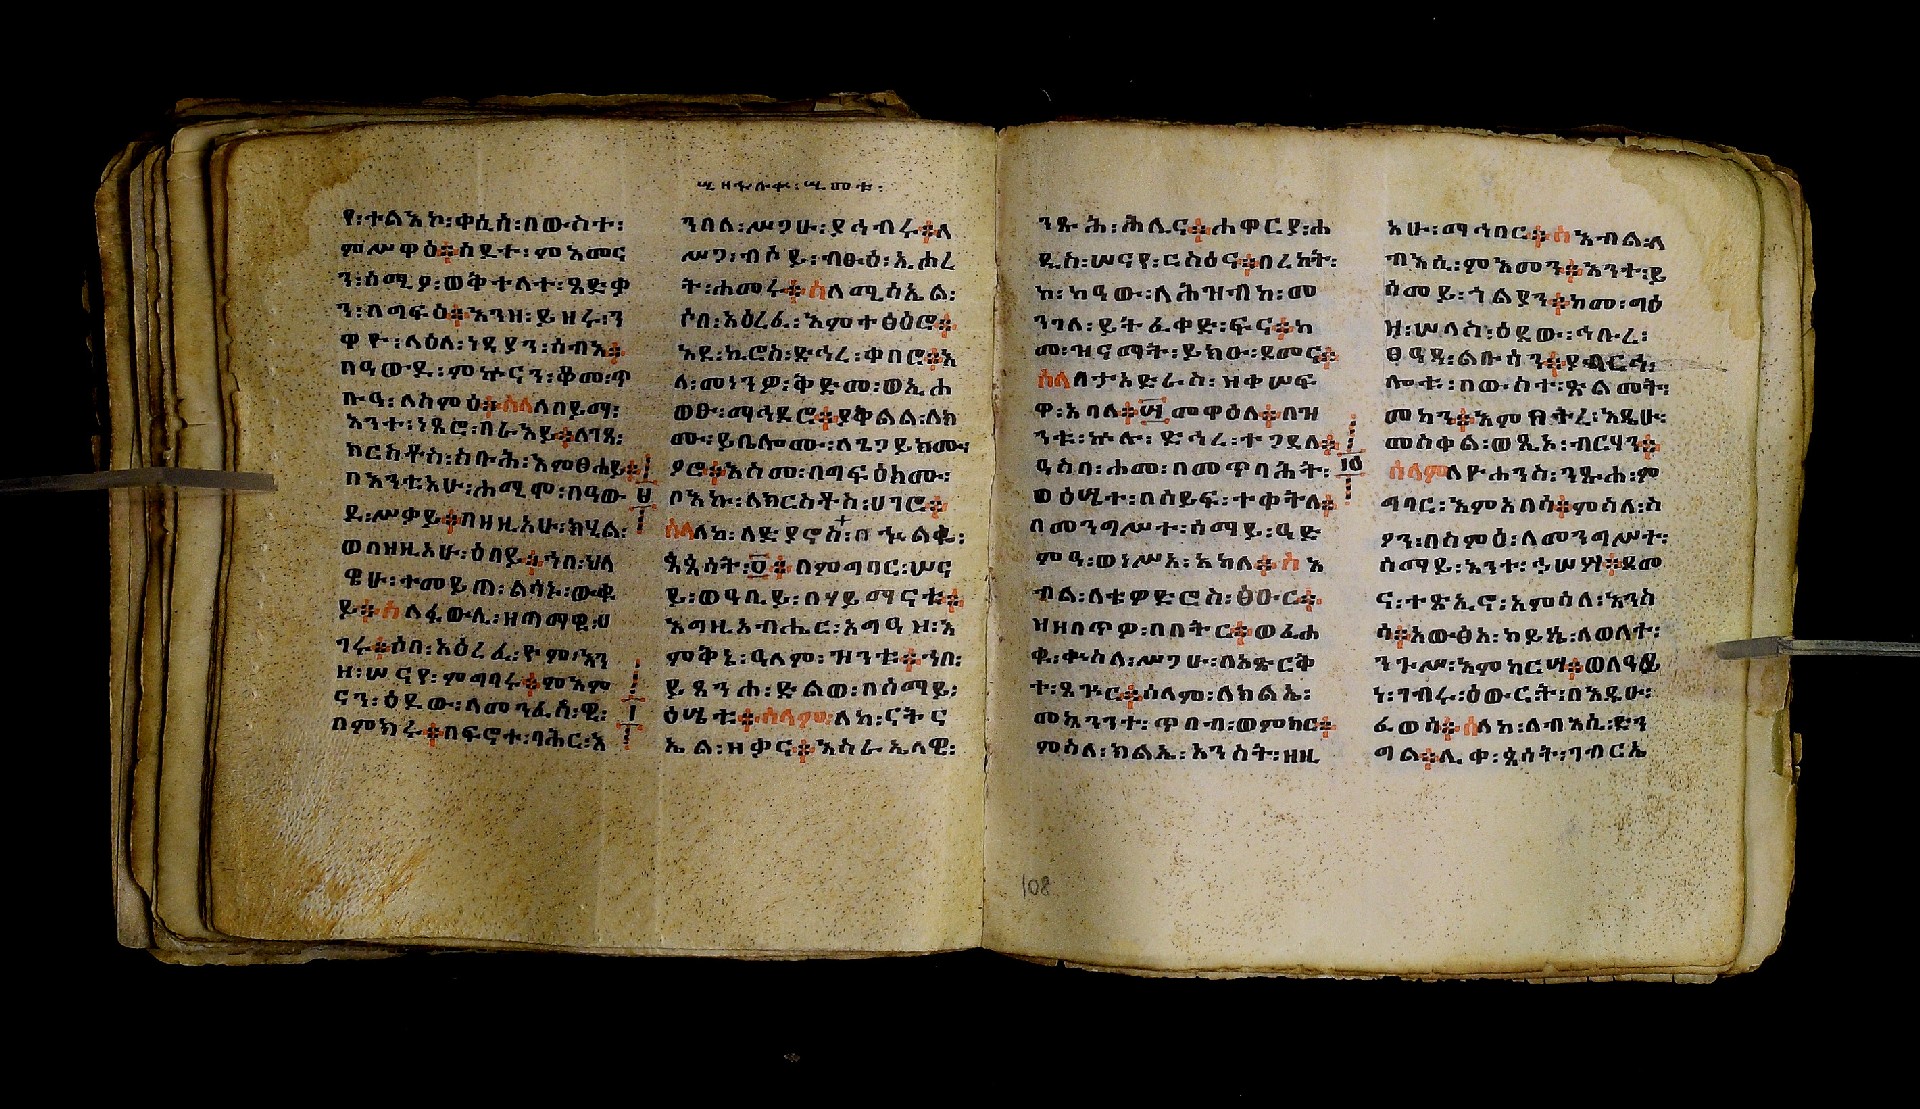 የ፡ተልእኮ፡ቀሲስ፡በውስተ፡
ምሥዋዕ፡ስደተ፡ምእመና
ን፡ሰሚዖ፡ወቅተለተ፡ጻድቃ
ን፡በግፍዕ፡እንዘ፡ይዘሩ፡ን
ዋዮ፡ለዕለ፡ነዳያን፡ሰብእ፡
በዓውደ፡ምኵናን፡ቆመ፡ጥ
ቡዓ፡ለስምዕ፡ሰላለበይማ፡
እንተ፡ነጸሮ፡በራእይ፡ለገጸ፡
ክርስቶስ፡ስቡሕ፡እምፀሐይ፡
በእንቲአሁ፡ሐሚሞ፡በዓው
ደ፡ሥቃይ፡በዘዚአሁ፡ክሂል፡
ወበዝዚአሁ፡ዕበይ፡ኀበ፡ህላ
ዌሁ፡ተመይጠ፡ልሳኑ፡ውቁ
ይ፡ሰለፈውሊ፡ዘጠማዊ፡ሀ
ገሩ፡ሰበ፡አዕረፈ፡ዮም፡እን
ዘ፡ሠናየ፡ምግባሩ፡ምእም
ናን፡ዕደው፡ለመንፈሰ፡ዊ፡
በምክሩ፡በፍኖተ፡ባሕር፡አ
፱
፲
፩ዘፋሉቀ፡፩መቱ፡
ንበለ፡ሥጋሁ፡ያኅብሩ፡ለ
ሥጋ፡ብሶይ፡ብፁዕ፡ኢሐረ
ት፡ሐመሩ፡ሰለሚሳኤል፡
ሶበ፡አዕረፈ፡እምተፅዕሮ፡
አደ፡ኪሮስ፡ድኅረ፡ቀበሮ፡አ
ለ፡መነንዎ፡ቅድመ፡ወኢሐ
ወፁ፡ማኅደሮ፡ያቅልል፡ለክ
ሙ፡ይቤሎሙ፡ለጊጋይክሙ፡
ፆሮ፡እስመ፡በግፍዕክሙ፡
ቦአኩ፡ለክርስቶስ፡ሀገሮ፡
ሰላለከ፡ለድያኖስ፡በኍልቁ፡
ጳጳሳት፡፬፡በምግባር፡ሠና
ይ፡ወዓቢይ፡በሃይማናቱ፡
እግዚአብሔር፡አግዓዘ፡እ
ምቅኔ፡ዓለም፡ዝንቱ፡ኀበ፡
ይጸንሐ፡ድልወ፡በሰማይ፡
ዕሤቱ፡ሰላም፡ለከ፡ናትና
ኤል፡ዘቃና፡እስራኤላዊ፡
ንጹሕ፡ሕሊና፡ሐዋርያ፡ሐ
ዲስ፡ሠናየ፡ርስዕና፡በረከት፡
ከ፡ካዓው፡ለሕዝብከ፡መ
ንገለ፡ይትፈቀድ፡ፍና፡ከ
መ፡ዝናማት፡ይክዑ፡ደመና፡
ሰላለታእድራስ፡ዝቀሠፍ
ዋ፡አባለ፡፶መዋዕለ፡በዝ
ንቱ፡ኵሎ፡ድኅረ፡ተጋደለ፡
ዓስበ፡ሐመ፡በመጥባሕት፡
ወዕሤተ፡በሰይፍ፡ተቀትለ፡
በመንግሥተ፡ሰማይ፡ዒድ
ምዓ፡ወነሥአ፡አክለ፡ሰአ
ብል፡ለቴዎድሮስ፡ፅዑር፡
ዝዘበጥዎ፡በበትር፡ወፈሐ
ቁ፡ቍስለ፡ሥጋሁ፡በአጽርቅ
ት፡ጸጕር፡ሰላም፡ለክልኤ፡
መኳንንተ፡ጥበብ፡ወምክር፡
ምስለ፡ክልኤ፡አንስት፡ዘዚ
፲፬
አሁ፡ማኅበር፡ሰእብል፡ለ
ብእሲ፡ምእመን፡እንተ፡ይ
ሰመይ፡ጎልያን፡ከመ፡ግዕ
ዝ፡ሠለስ፡ዕደው፡ኅቡረ፡
ሎቱ፡በውስተ፡ጽልመት፡
መካን፡እምቅትረ፡እዴሁ፡
መስቀል፡ወጺኦ፡ብርሃን፡
ሰላምለዮሐንስ፡ንጹሐ፡ም
ግባር፡እምአበሳ፡ምስለ፡ስ
ምዖን፡በስምዕ፡ለመንግሥት፡
ሰማይ፡እንተ፡ኀሠሣ፡ደመ
ና፡ተጽኢኖ፡እምዕለ፡እንስ
ሳ፡አውፅአ፡ከይሴ፡ለወለት፡
ንጉሥ፡እምከርሣ፡ወለዓፅ
ነ፡ገብሩ፡ዕውርት፡በእዴሁ፡
ፈወሳ፡ሰለከ፡ለብእሲ፡ድን
ግል፡ሊቀ፡ጳጳሳት፡ገብርኤ
108